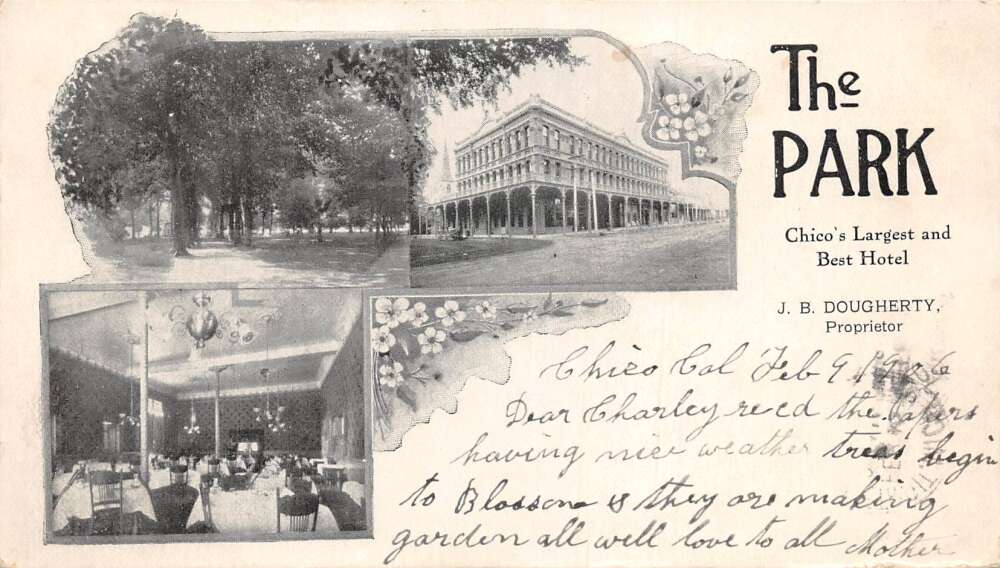 The
PARK
Chico's Largest and
Best Hotel
J. B. DOUGHERTY,
Proprietor
Chico Cal Feb 9 1906
Dear Charley recd the papers
having nice weather trees begin
to Blossom & they are making
garden all well love to all Mother